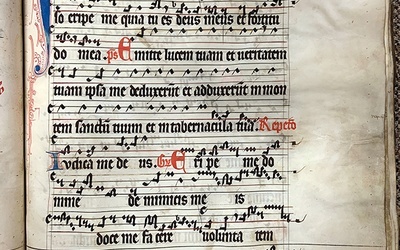 so eripe me quia tu es deus meus et fortitu
do mea. ps Emitte lucem tuam et veritatem
tuam ipsa me deduxerūt et adduxerūt in mon
tem sanctū tuum et in tabernacula tua. Repetō
Iudica me de us. Gr Eri pe me do
mine de inimicis me is
doce me facere volunta tem